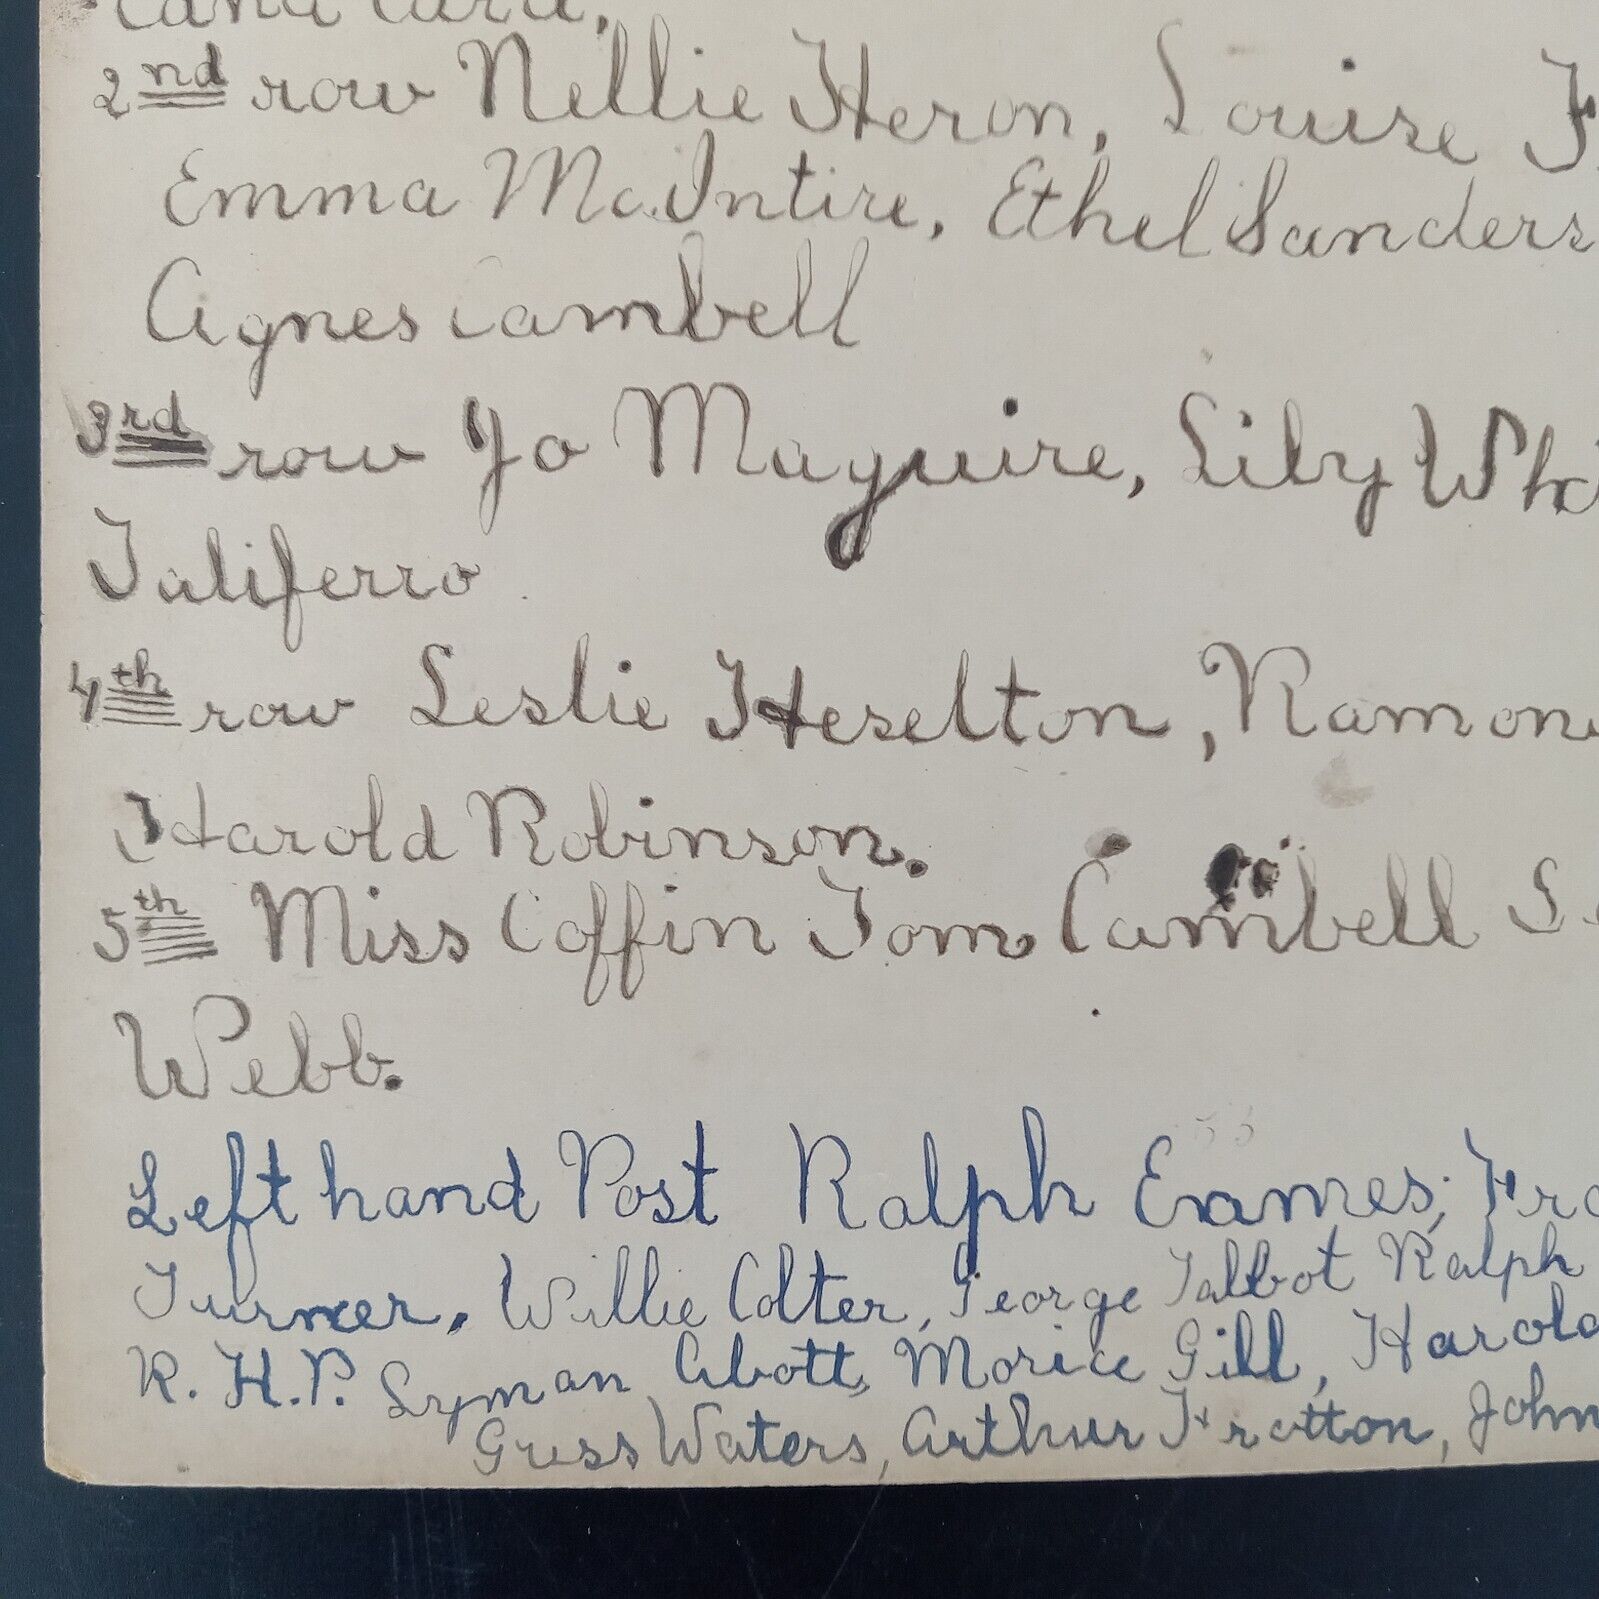 2nd row Nellie Heron, Louise
Emma McIntire, Ethel Sanders
Agnes Cambell
3rd row Jo Maguire, Lily
Taliferro
4th row Leslie Heselton, Ramon
Harold Robinson.
5th Miss Coffin Tom Cambell
Webb.
Left hand Post Ralph Eames,
Turner, Willie Colter, George Talbot Ralph
R. H.P. Lyman Abott, Morice Gill, Harold
Guss Waters, Arthur Fratton, John